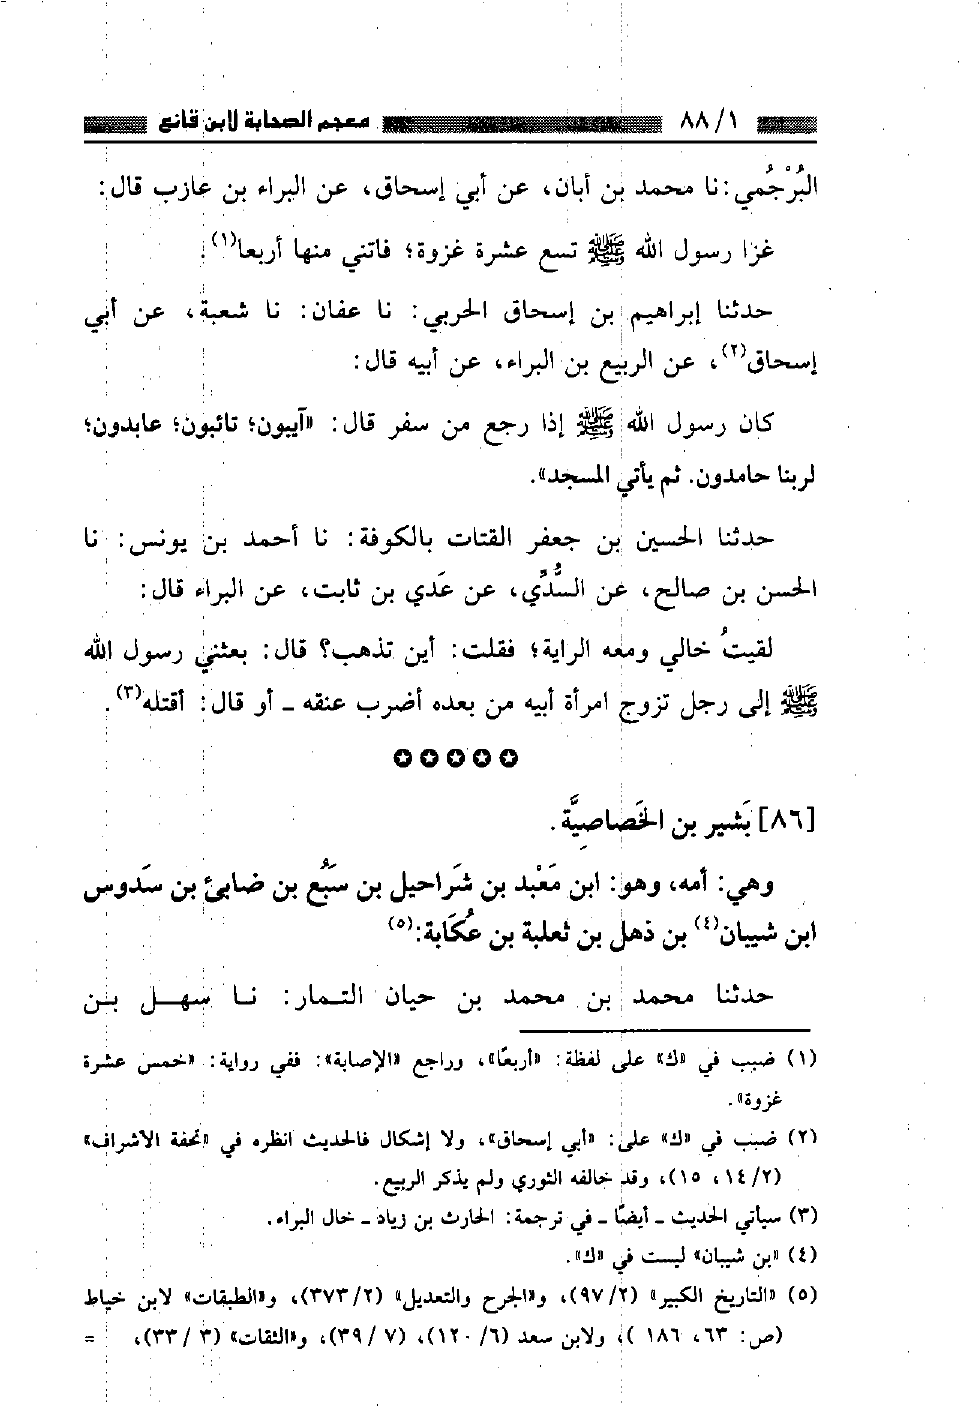 ٨٨/١ معجم الصحابة لابن قانع
البُرْجُمي: نا محمد بن أبان، عن أبي إسحاق، عن البراء بن عازب قال:
غزا رسول الله ﷺ تسع عشرة غزوة؛ فاتني منها أربعا(١).
حدثنا إبراهيم بن إسحاق الحربي: نا عفان: نا شعبة، عن أبي
إسحاق(٢)، عن الربيع بن البراء، عن أبيه قال:
كان رسول الله ﷺ إذا رجع من سفر قال: «آيبون؛ تائبون؛ عابدون؛
لربنا حامدون. ثم يأتي المسجد».
حدثنا الحسين بن جعفر القتات بالكوفة: نا أحمد بن يونس: نا
الحسن بن صالح، عن السُّدِّي، عن عَدي بن ثابت، عن البراء قال:
لقيتُ خالي ومعه الراية؛ فقلت: أين تذهب؟ قال: بعثني رسول الله
ﷺ إلى رجل تزوج امرأة أبيه من بعده أضرب عنقه ـ أو قال: أقتله(٣).
✪✪✪✪✪
[٨٦] بَشير بن الخَصاصِيَّة.
وهي: أمه، وهو: ابن مَعْبد بن شَراحيل بن سَبُع بن ضابئ بن سَدوس
ابن شيبان(٤) بن ذهل بن ثعلبة بن عُكَابة:(٥)
حدثنا محمد بن محمد بن حيان التمار: نا سهل بن
(١) ضبب في «ك» على لفظة: «أربعًا»، وراجع «الإصابة»: ففي رواية: «خمس عشرة
غزوة».
(٢) ضبب في «ك» على: «أبي إسحاق»، ولا إشكال فالحديث انظره في «تحفة الأشراف»
(١٤/٢، ١٥)، وقد خالفه الثوري ولم يذكر الربيع.
(٣) سيأتي الحديث ـ أيضًا ـ في ترجمة: الحارث بن زياد ـ خال البراء.
(٤) «بن شيبان» ليست في «ك».
(٥) «التاريخ الكبير» (٩٧/٢)، و«الجرح والتعديل» (٣٧٣/٢)، و«الطبقات» لابن خياط
(ص: ٦٣، ١٨٦ )، ولابن سعد (١٢٠/٦)، (٣٩/٧)، و«الثقات» (٣٣/٣)، =